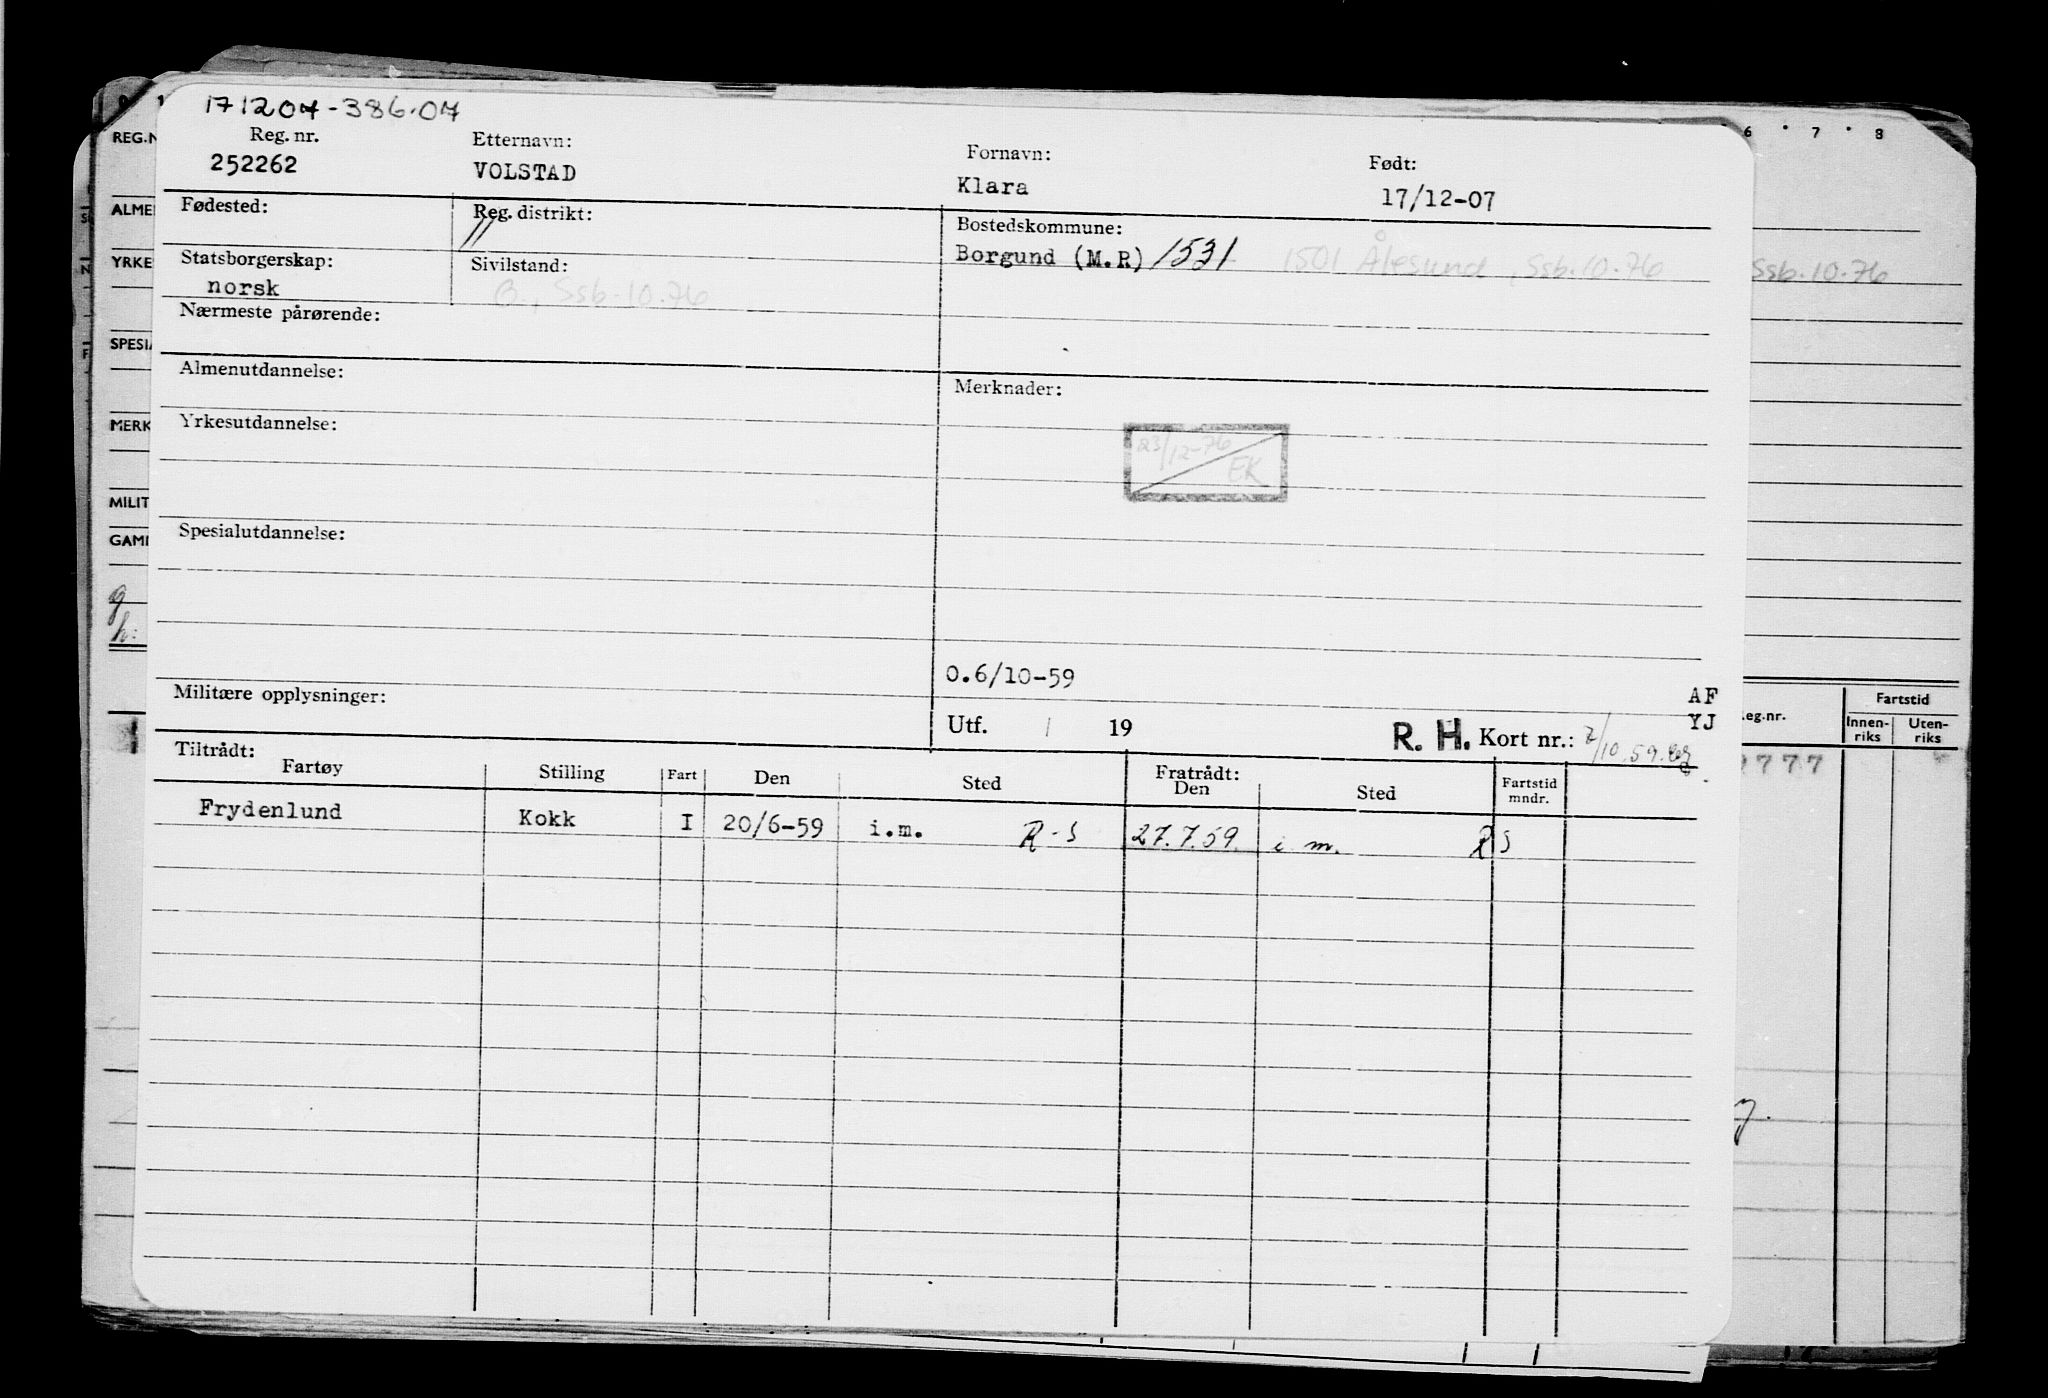 171207-386.07
Reg. nr. Etternavn: Fornavn: Født:
252262 VOLSTAD Klara 17/12-07
Fødested: Reg. distrikt: Bostedskommune:
11 Borgund (M.R) 1531 1501 Ålesund, Ssb.10.76 Ssb.10.76
Statsborgerskap: Sivilstand:
norsk G., Ssb.10.76
Nærmeste pårørende:
Almenutdannelse: Merknader:
Yrkesutdannelse:
23/12-76
EK
Spesialutdannelse:
0.6/10-59
Militære opplysninger: AF
Utf. / 19 R. H. Kort nr.: 7/10.59. YJ
Tiltrådt: Fratrådt:
Fartøy Stilling Fart Den Sted Den Sted Fartstid
mndr.
Frydenlund Kokk I 20/6-59 i.m. R-S 27.7.59. i m. RS
REG.N
ALME
YRKE
SPESIA
MERK
MILIT
GAM
6 7 8
eg.nr. Fartstid
Innen-
riks Uten-
riks
777